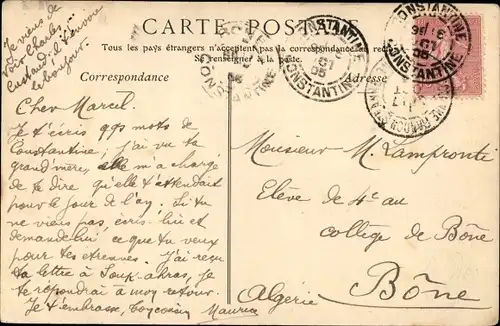 Je viens de
voir Charles
t'envoie
le bonjour.
CARTE POSTALE
Tous les pays étrangers n'acceptent pas la correspondance au recto
Se renseigner à la poste.
Correspondance
Adresse
CONSTANTINE
CONSTANTINE
CONSTANTINE
CONSTANTINE
Cher Marcel.
Je t'écris qqs mots de
Constantine, j'ai vu ta
grand'mère, elle m'a chargé
de te dire qu'elle t'attendait
pour le jour de l'an. Si tu
ne viens pas, écris-lui et
demande lui, ce que tu veux
pour tes étrennes. J'ai reçu
ta lettre à Souk-ahras, je te
répondrai à mon retour.
Je t'embrasse, Maurice
Monsieur M. Lampronti
Elève de 4e au
collège de Bône
Bône
Algérie